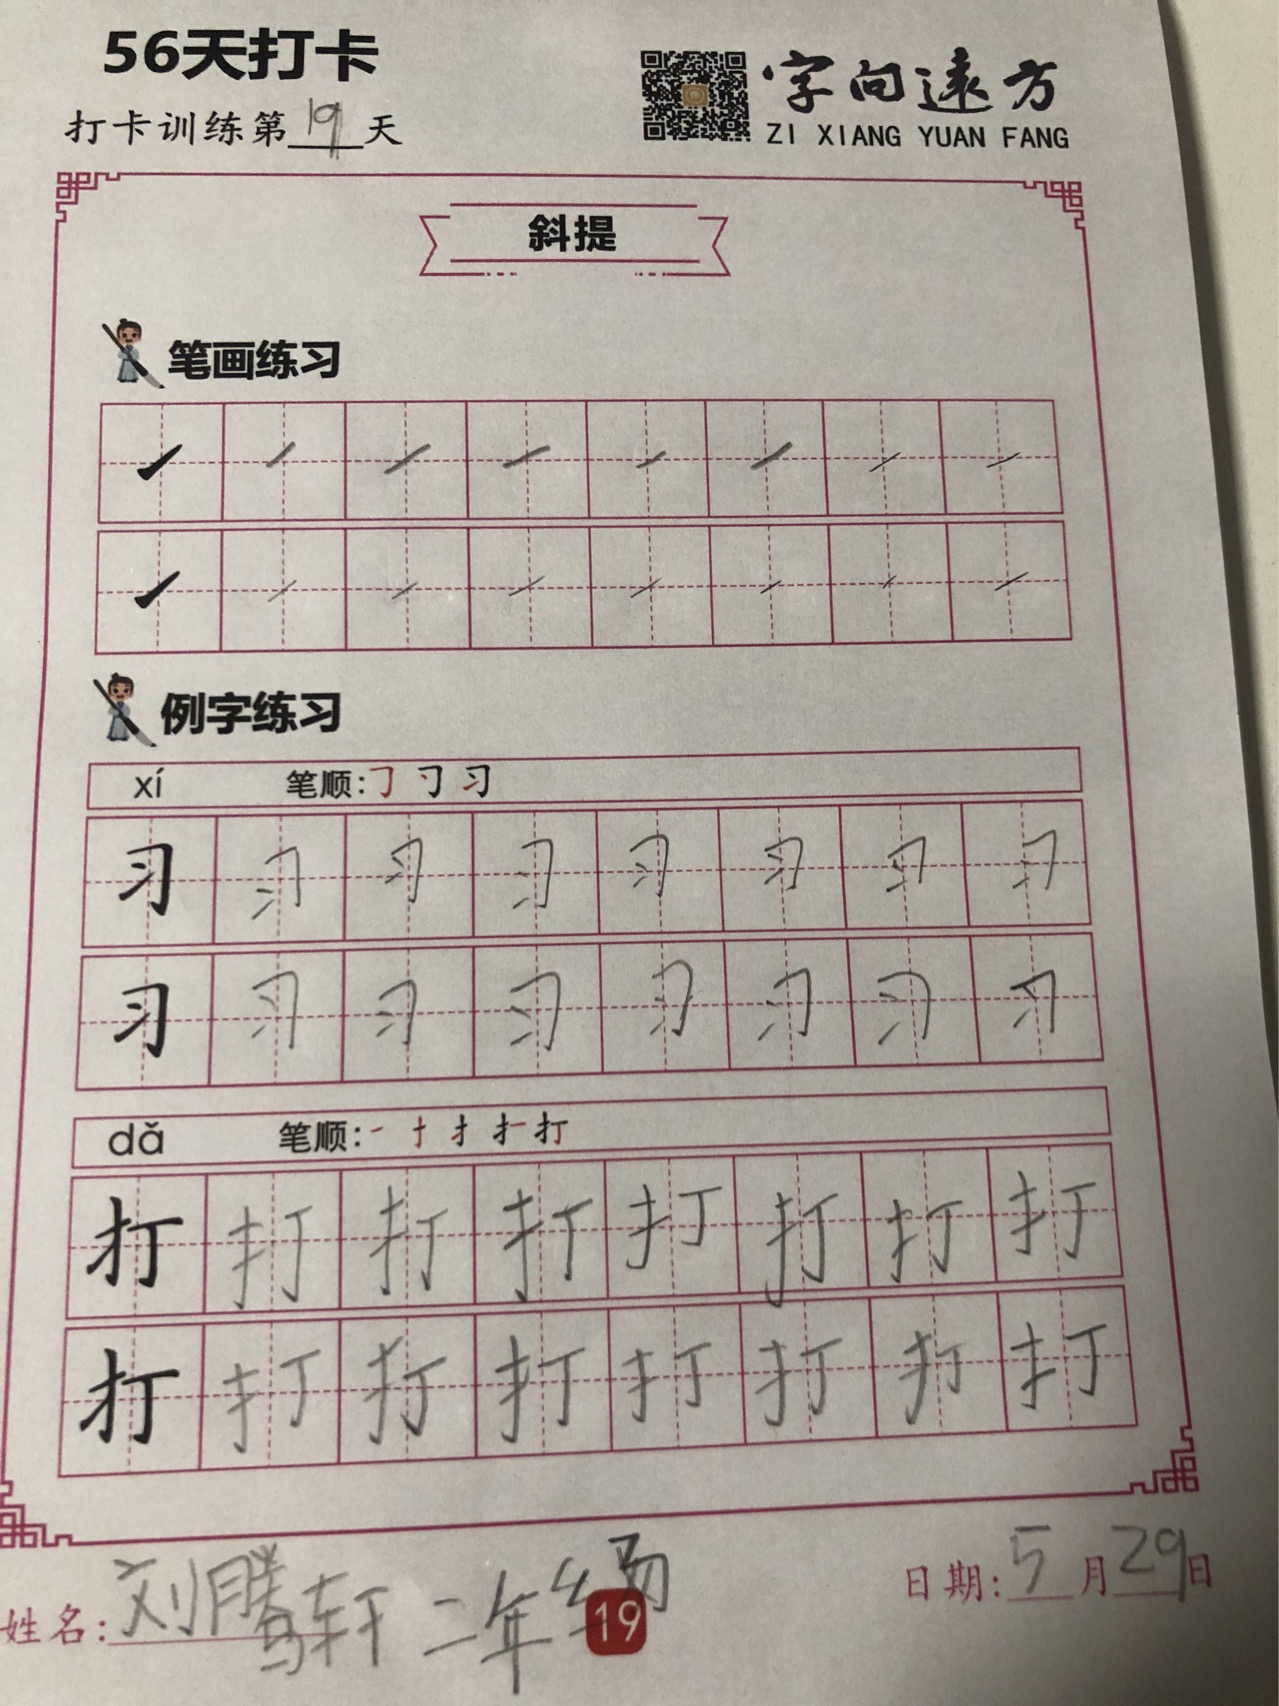 56天打卡
打卡训练第19天
字向远方
ZI XIANG YUAN FANG
斜提
笔画练习
例字练习
xí 笔顺:
习 习 习 习 习 习 习 习
习 习 习 习 习 习 习 习
dǎ 笔顺: 打
打 打 打 打 打 打 打 打
打 打 打 打 打 打 打 打
姓名:刘腾轩 二年级
19
日期:5月29日